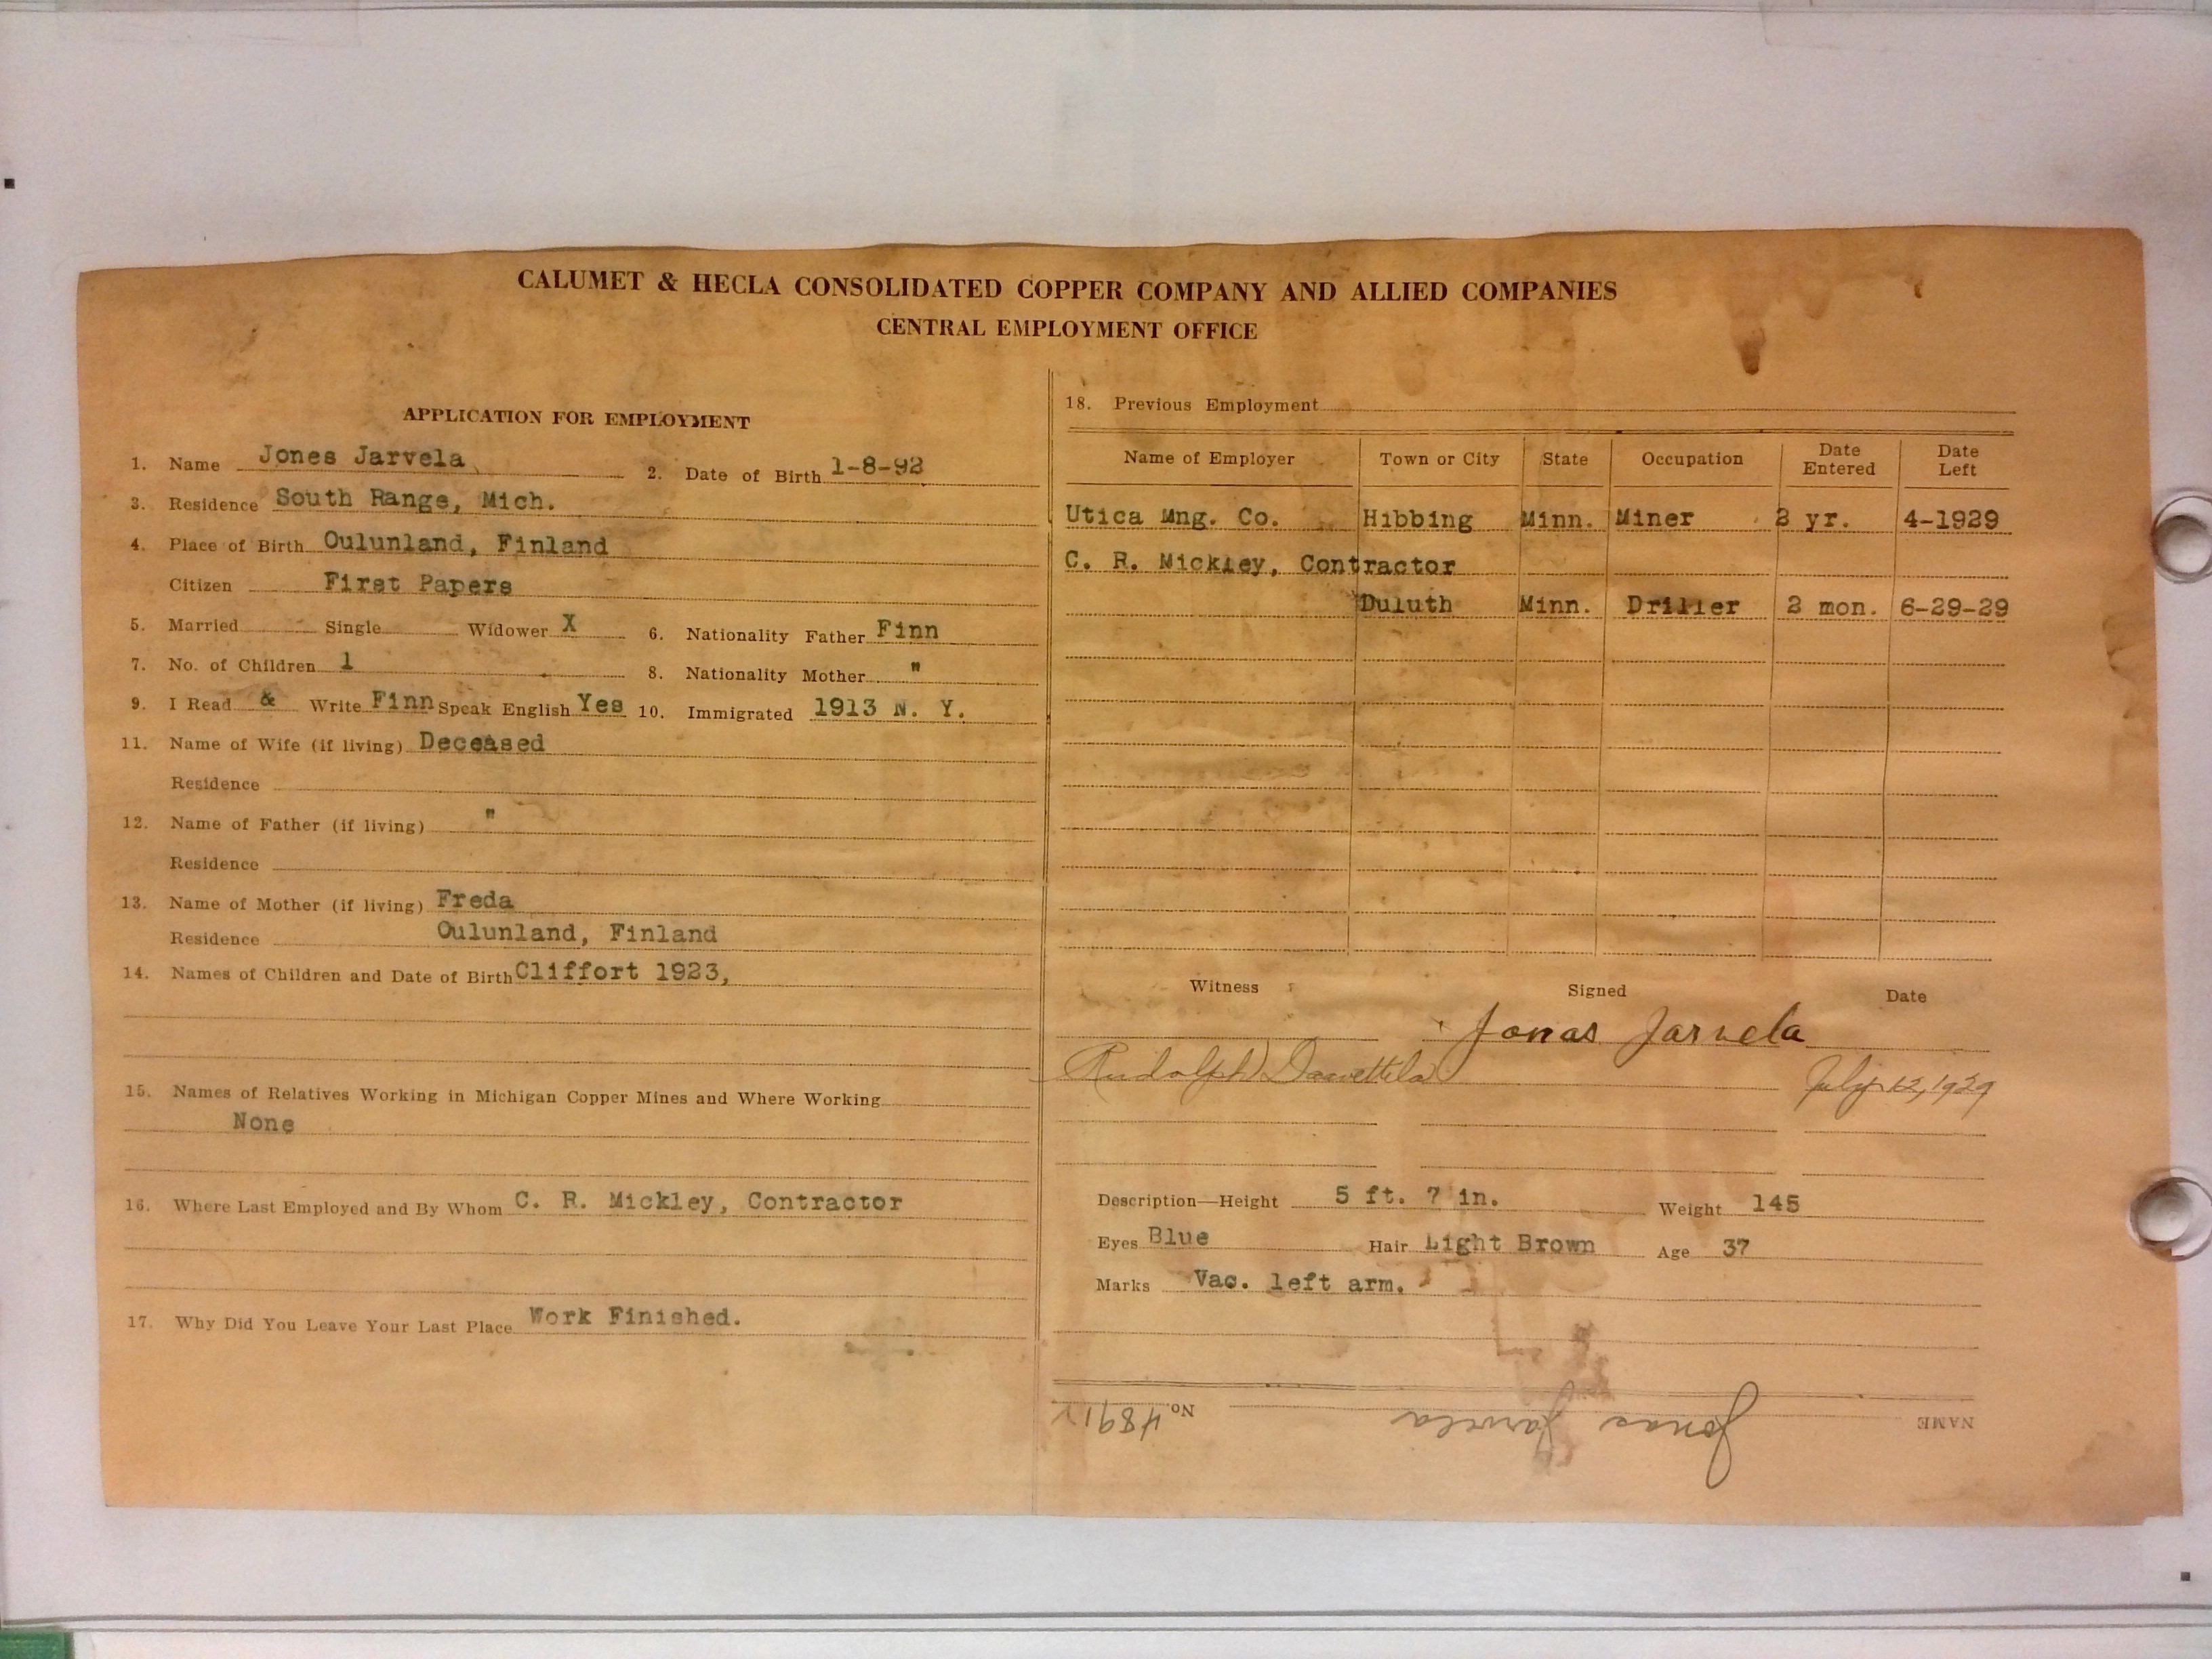 CALUMET & HECLA CONSOLIDATED COPPER COMPANY AND ALLIED COMPANIES
CENTRAL EMPLOYMENT OFFICE
APPLICATION FOR EMPLOYMENT
1. Name Jones Jarvela 2. Date of Birth 1-8-92
3. Residence South Range, Mich.
4. Place of Birth Oulunland, Finland
Citizen First Papers
5. Married Single Widower X 6. Nationality Father Finn
7. No. of Children 1 8. Nationality Mother "
9. I Read & Write Finn Speak English Yes 10. Immigrated 1913 N. Y.
11. Name of Wife (if living) Deceased
Residence
12. Name of Father (if living) "
Residence
13. Name of Mother (if living) Freda
Residence Oulunland, Finland
14. Names of Children and Date of Birth Cliffort 1923,
15. Names of Relatives Working in Michigan Copper Mines and Where Working
None
16. Where Last Employed and By Whom C. R. Mickley, Contractor
17. Why Did You Leave Your Last Place Work Finished.
18. Previous Employment
Name of Employer Town or City State Occupation Date Entered Date Left
Utica Mng. Co. Hibbing Minn. Miner 2 yr. 4-1929
C. R. Mickley, Contractor
Duluth Minn. Driller 2 mon. 6-29-29
Witness Signed Date
Jonas Jarvela
Rudolph July 12, 1929
Description—Height 5 ft. 7 in. Weight 145
Eyes Blue Hair Light Brown Age 37
Marks Vac. left arm.
NAME Jonas Jarvela No.